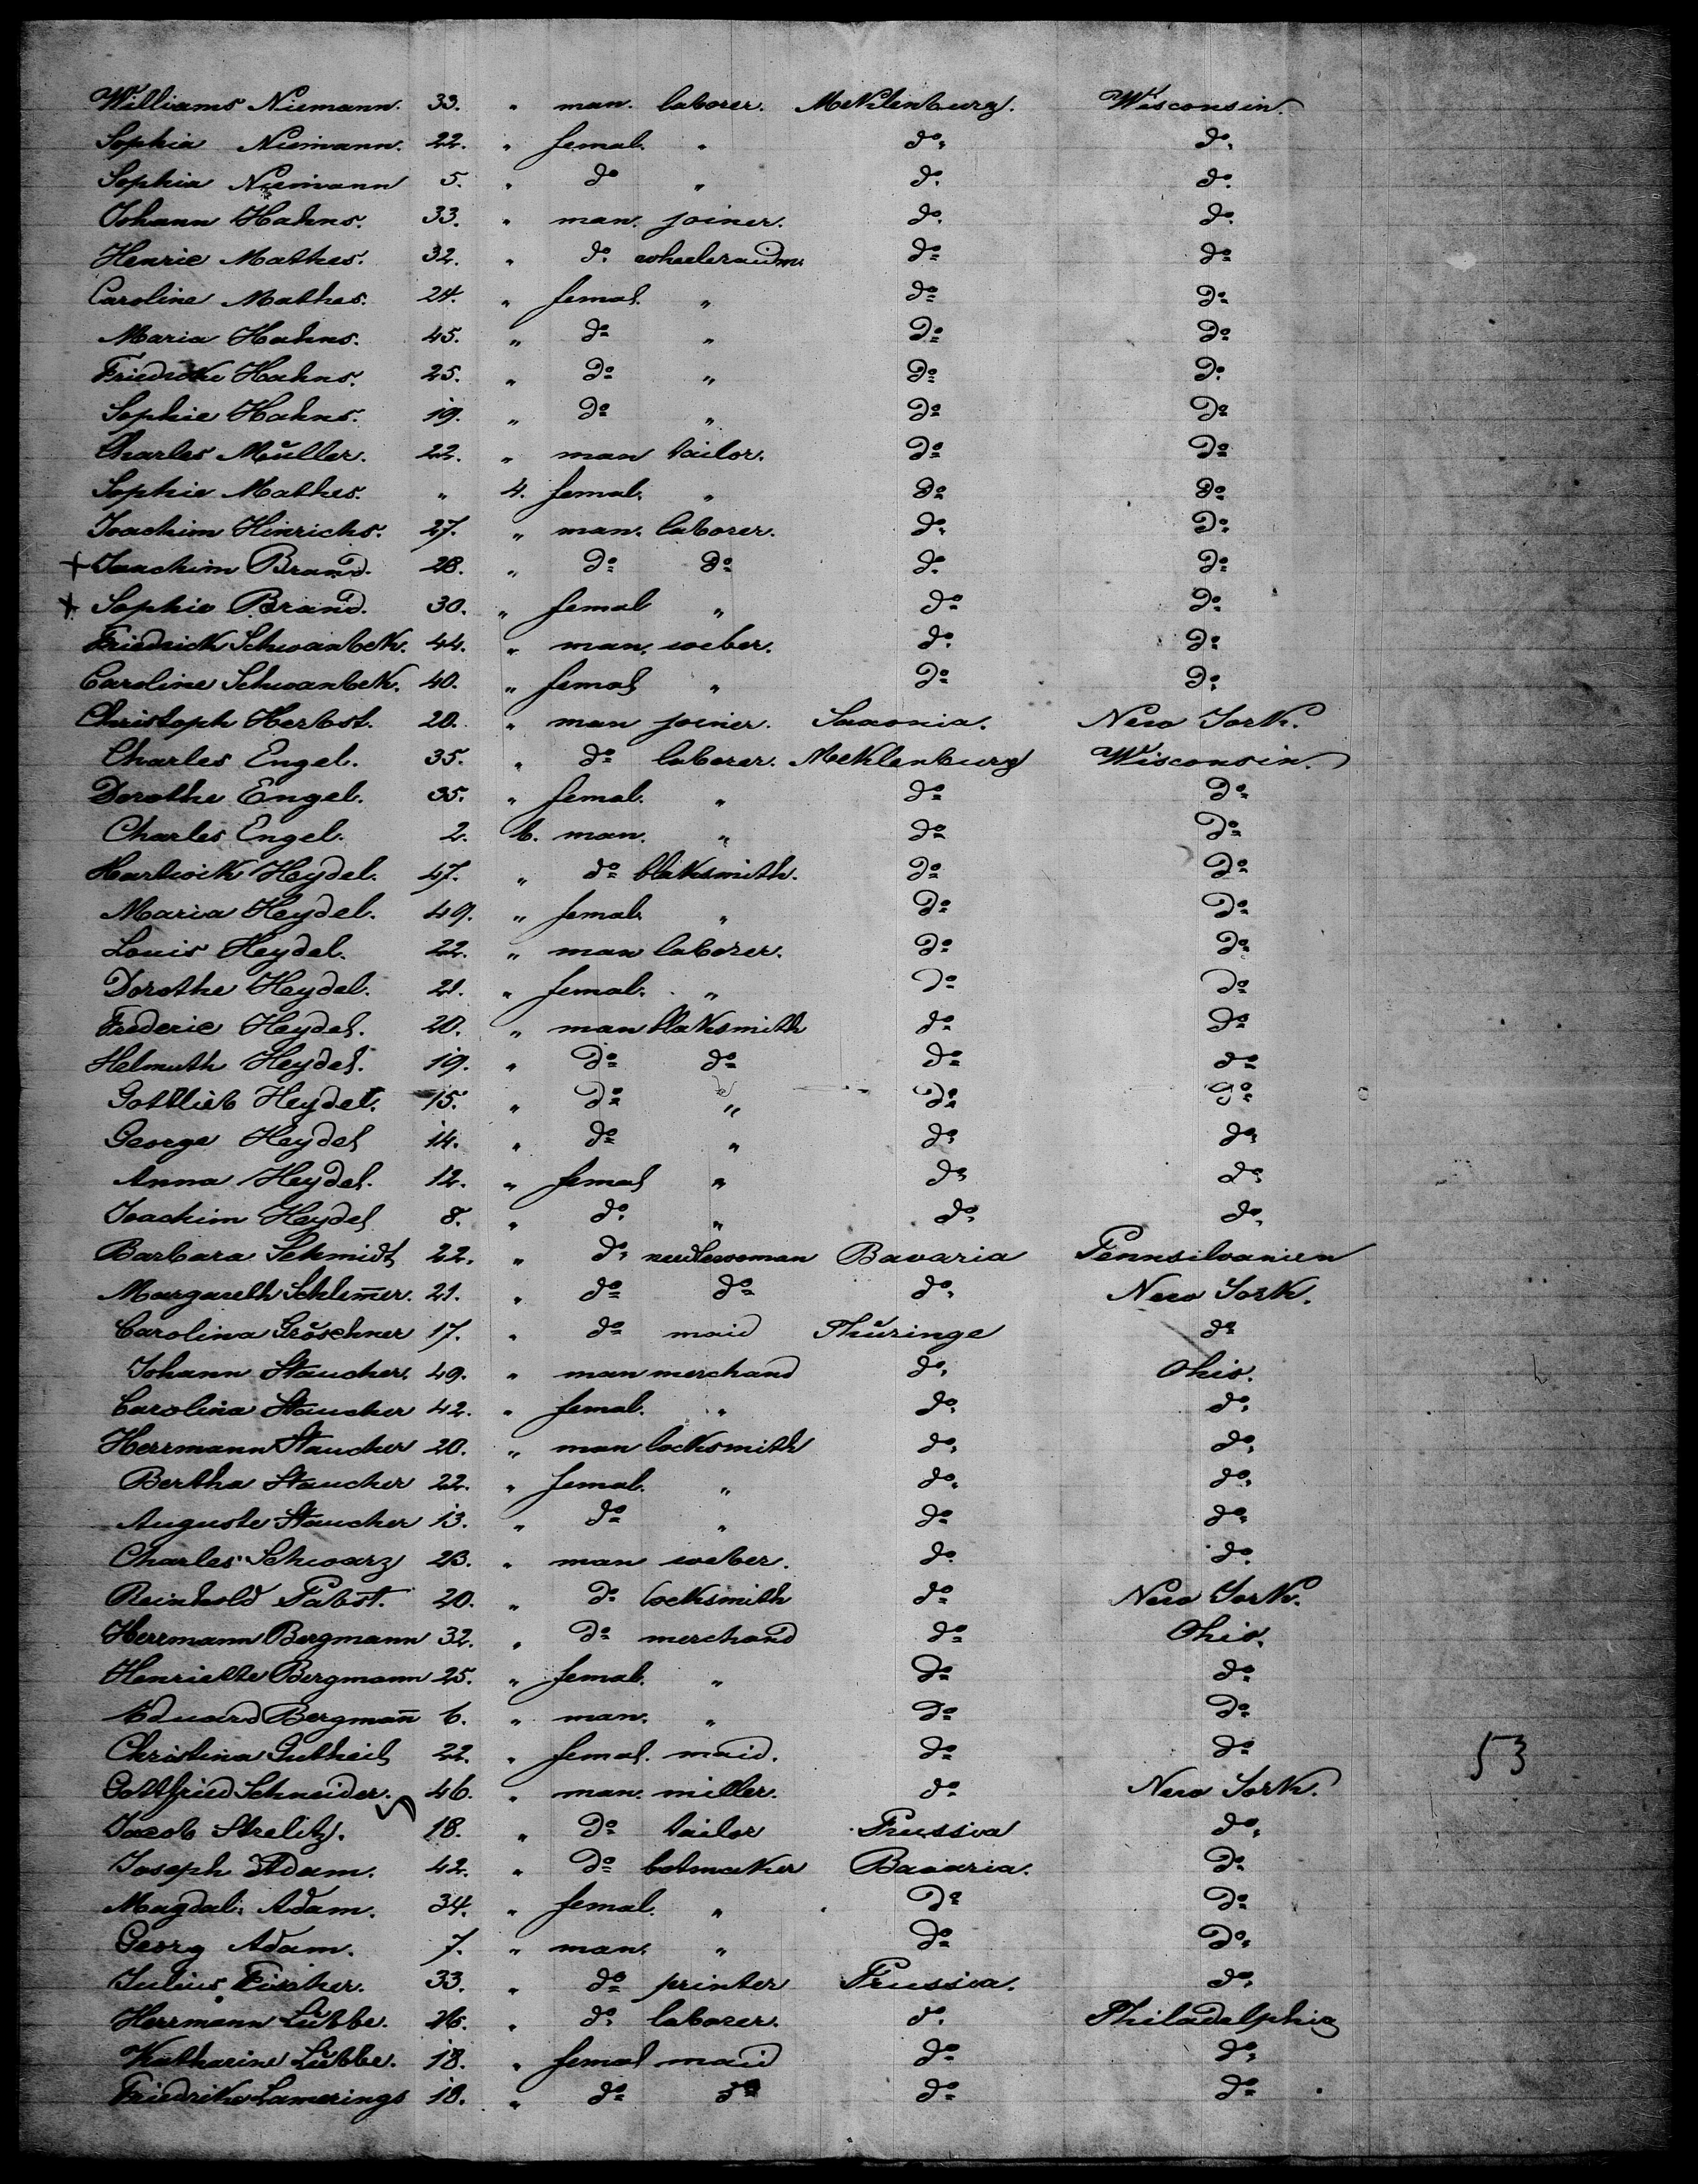 Williams Niemann. 33. " man. laborer. Meklenburg. Wisconsin.
Sophia Niemann. 22. " femal. " do. do.
Sophia Niemann 5. " do " do. do.
Johann Hahns. 33. " man. joiner. do. do.
Henric Mathes. 32. " do. do do
Caroline Mathes. 24. " femal. " do do
Maria Hahns. 45. " do " do do
Friedrike Hahns. 25. " do " do do
Sophie Hahns. 19. " do " do do
Charles Müller. 22. " man tailor. do do
Sophie Mathes. " 4. femal. " do do
Joachim Hinrichs. 27. " man. laborer. do. do.
+ Joachim Brand. 28. " do do do. do
+ Sophie Brand. 30. " femal " do do
Friedrich Schwanbek. 44. " man. weber. do. do
Caroline Schwanbek. 40. " femal " do do
Christoph Herbst. 20. " man joiner. Saxonia. New York.
Charles Engel. 35. " do laborer. Meklenburg Wisconsin.
Dorothe Engel. 35. " femal. " do do
Charles Engel. 2. 6. man. " do do
Hartwik Heydel. 47. " do blaksmith. do do
Maria Heydel. 49. " femal. " do do
Louis Heydel. 22. " man laborer. do do
Dorothe Heydel. 21. " femal. " do do
Frederic Heydel. 20. " man blaksmith do do
Helmuth Heydel. 19. " do do do do
Gottlieb Heydel. 15. " do " do do
George Heydel 14. " do " do do
Anna Heydel. 12. " femal " do do
Joachim Heydel 8. " do. " do. do.
Barbara Schmidt 22. " do. needlewoman Bavaria Pennsilvanien
Margareth Schlem̅er. 21. " do do do. New York.
Carolina Gröschner 17. " do maid Thüringe do
Johann Staucher. 49. " man merchand do. Ohio.
Carolina Staucher 42. " femal. " do. do.
Herrmann Staucher 20. " man locksmith do. do.
Bertha Staucher 22. " femal. " do. do.
Auguste Staucher 13. " do " do do.
Charles Schwarz 23. " man weber. do. do.
Reinhold Pabst. 20. " do locksmith do New York.
Herrmann Bergmann 32. " do merchand do Ohio.
Henriette Bergmann 25. " femal. " do do
Eduard Bergman̅ 6. " man. " do do
Christina Gutheil 22. " femal. maid. do do
53
Gottfried Schneider. 46. " man. miller. do New York.
Jacob Strelitz. 18. " do tailor Prussia do.
Joseph Adam. 42. " do botmaker Bavaria. do
Magdal: Adam. 34. " femal. " do do
Georg Adam. 7. " man. " do do.
Julius Fischer. 33. " do printer Prussia. do.
Herrmann Lübbe. 26. " do. laborer. do. Philadelphia
Katharine Lübbe. 18. " femal maid do do.
Friedrike Lamerings 18. " do do do do